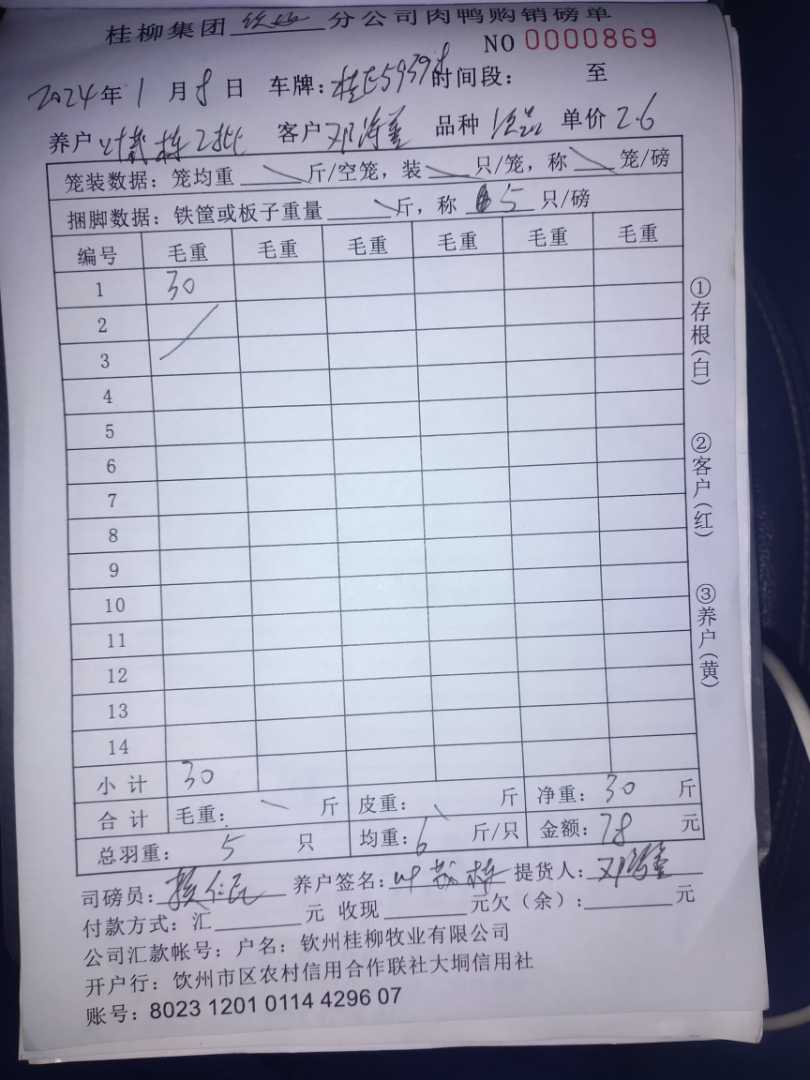 桂柳集团 钦州 分公司肉鸭购销磅单
NO 0000869
2024年1月8日 车牌: 时间段: 至
养户 栋2批 客户 邓海 品种 次品 单价 2.6
笼装数据: 笼均重 斤/空笼, 装 只/笼, 称 笼/磅
捆脚数据: 铁筐或板子重量 斤, 称 5 只/磅
编号 毛重 毛重 毛重 毛重 毛重 毛重
1 30
2
3
4
5
6
7
8
9
10
11
12
13
14
小计 30
合计 毛重: 斤 皮重: 斤 净重: 30 斤
总羽重: 5 只 均重: 6 斤/只 金额: 78 元
司磅员: 养户签名: 叶 栋 提货人: 邓海
付款方式: 汇 元 收现 元欠(余): 元
公司汇款帐号: 户名: 钦州桂柳牧业有限公司
开户行: 钦州市区农村信用合作联社大垌信用社
账号: 8023 1201 0114 4296 07
①存根(白)
②客户(红)
③养户(黄)